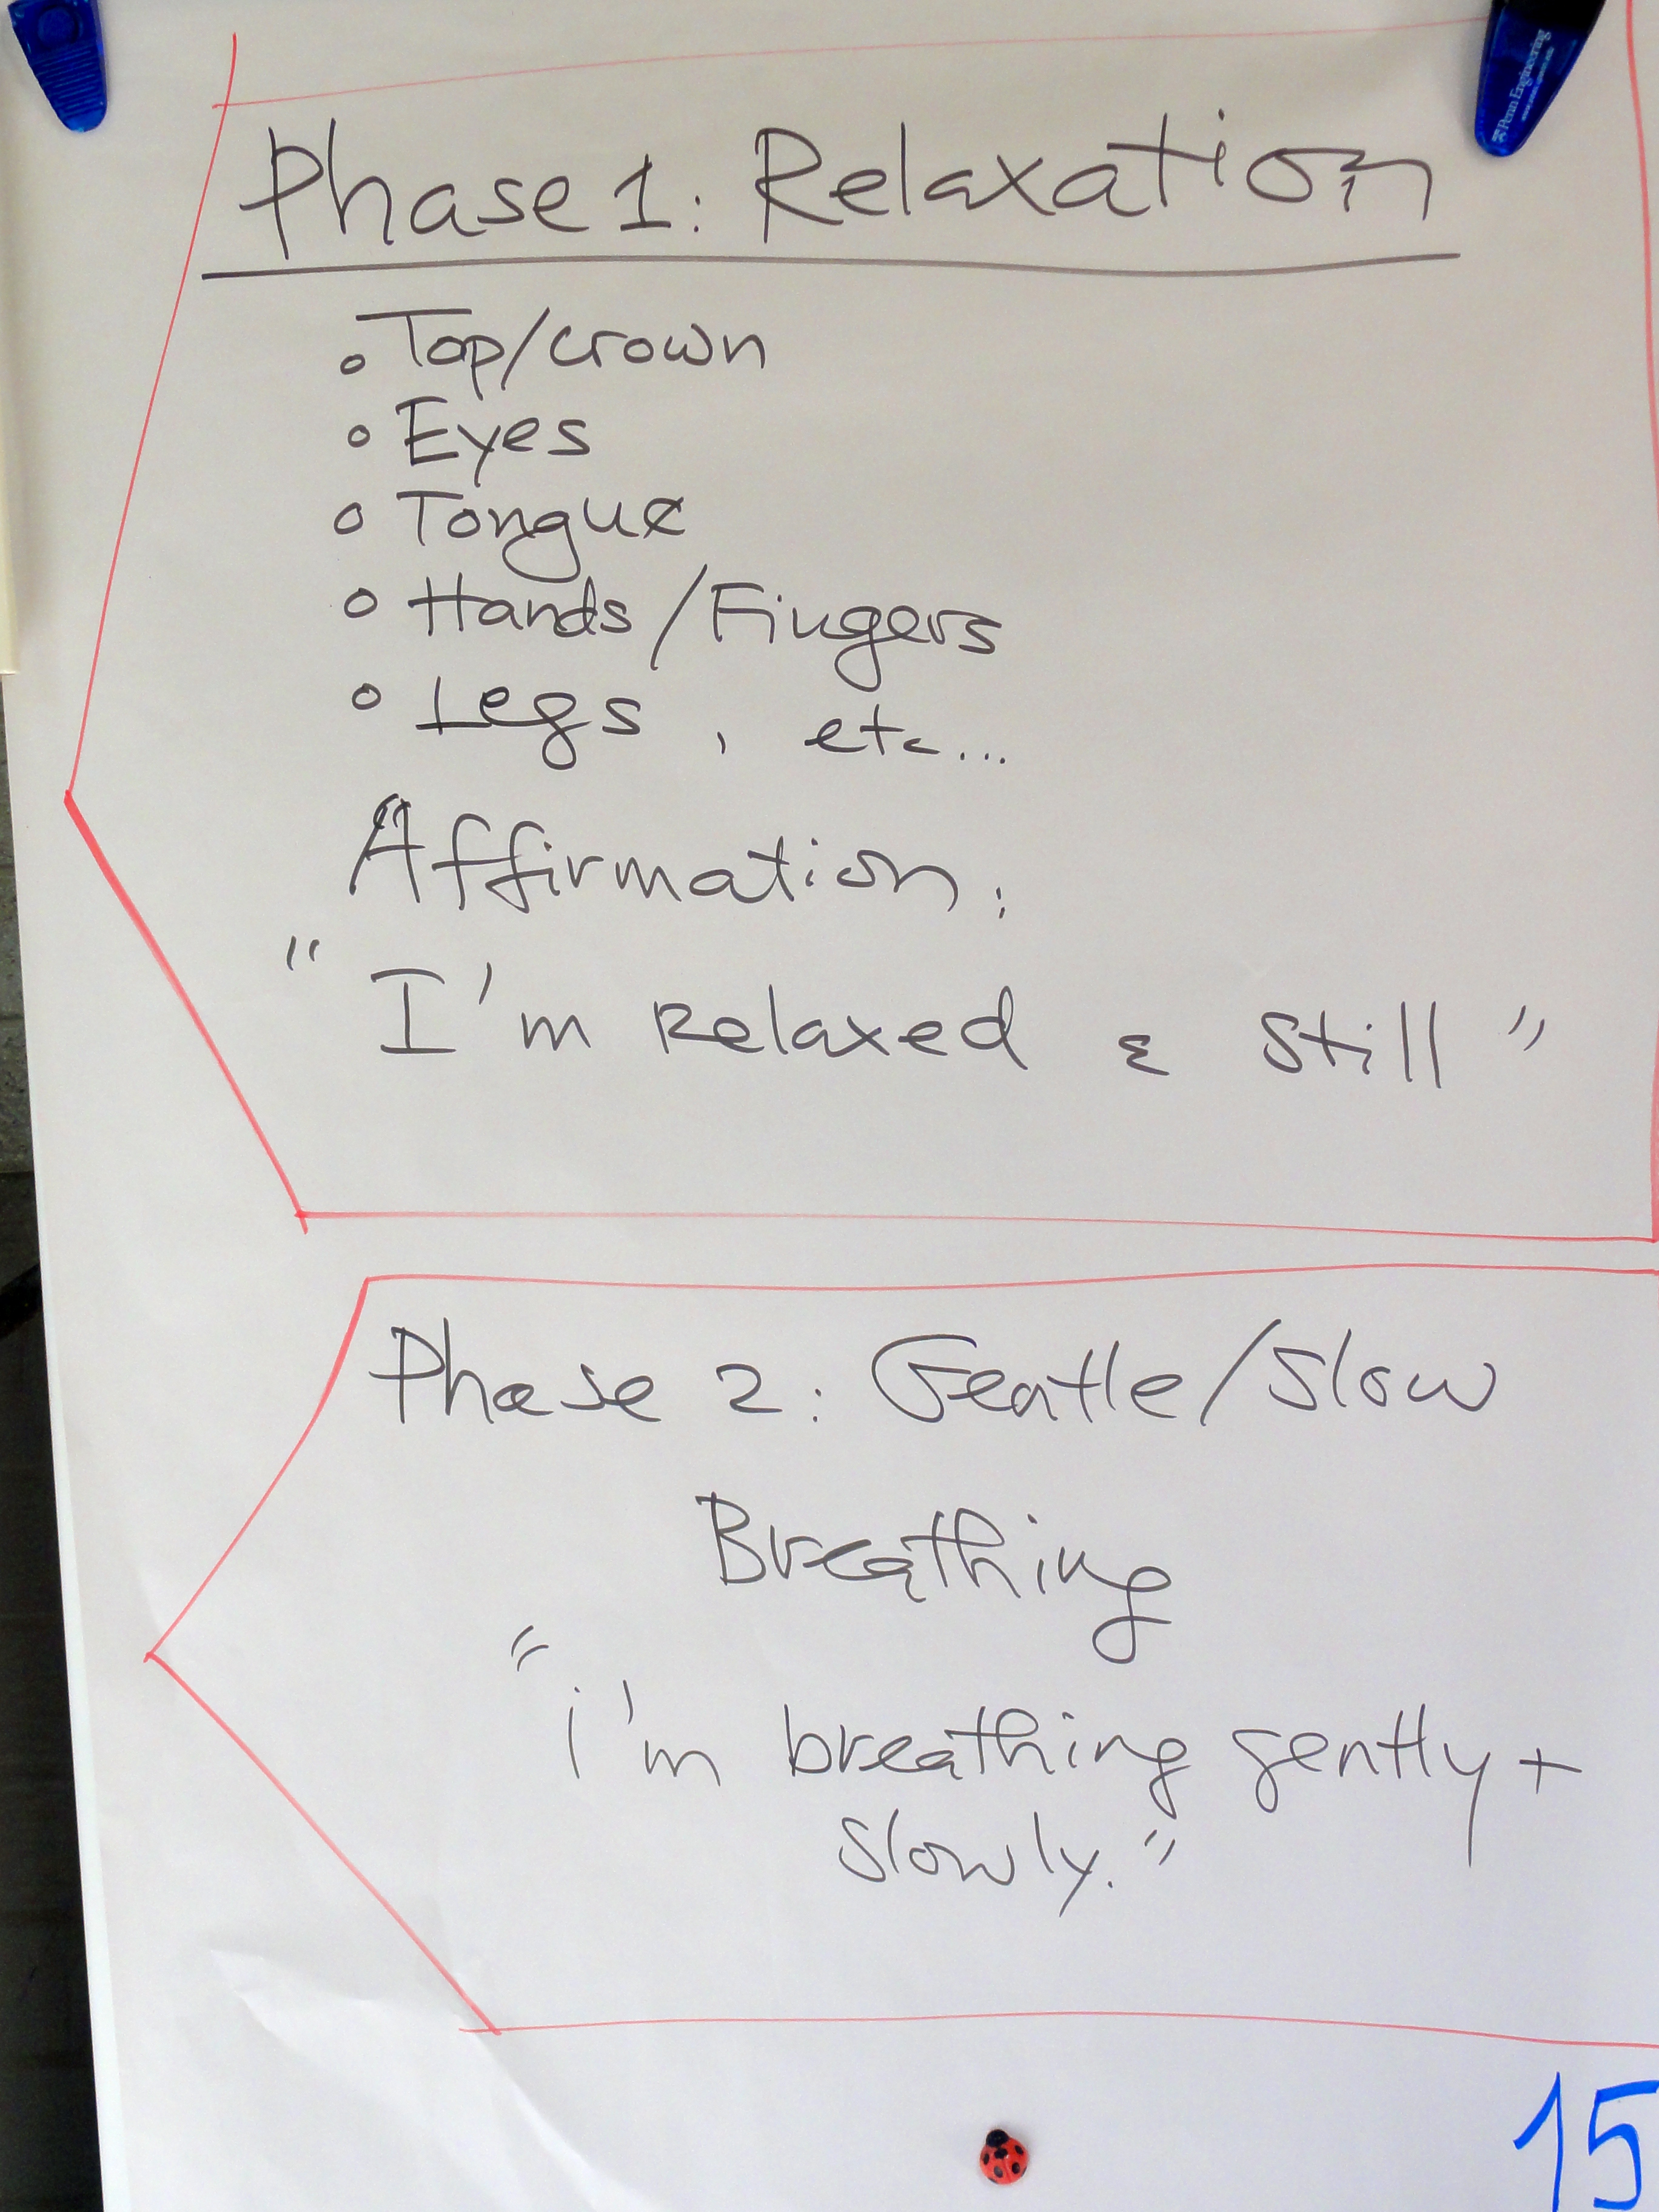 Penn Engineering
Phase 1: Relaxation
° Top/crown
° Eyes
° Tongue
° Hands/Fingers
° Legs, etc...
Affirmation:
" I'm Relaxed & Still "
Phase 2: Gentle/Slow
Breathing
" i'm breathing gently +
slowly. "
15